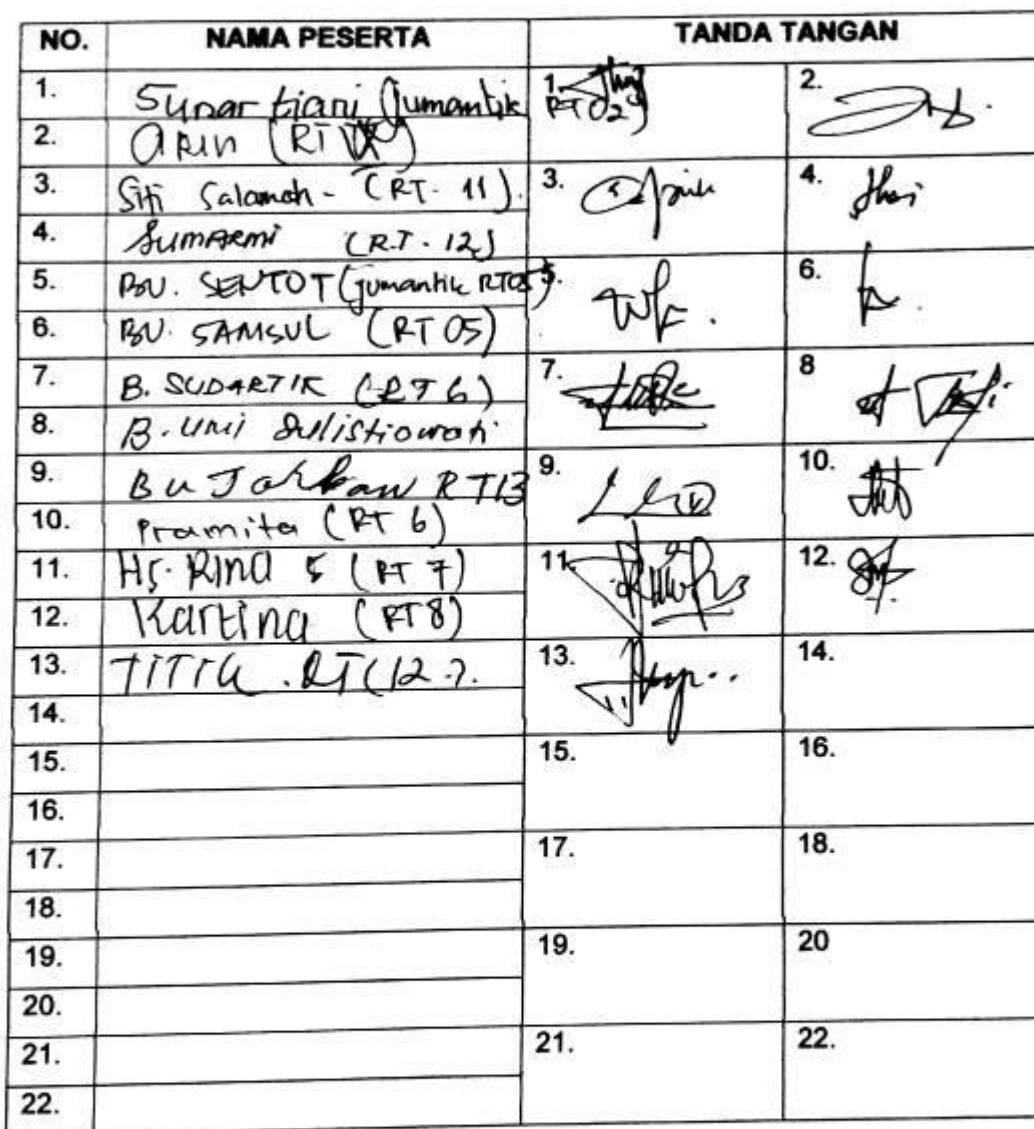 NO. NAMA PESERTA TANDA TANGAN
1. Sunartiani (Jumantik RT02) 1. 2.
2. ARIN (RT
3. Siti Salamah - (RT. 11). 3. 4.
4. SUMARMI (R.T. 12)
5. BU. SENTOT (jumantik RT05) 5. 6.
6. BU. SAMSUL (RT 05)
7. B. SUDARTIK (RT 6) 7. 8
8. B. Umi Sulistiowati
9. Bu RT13 9. 10.
10. Pramita (RT 6)
11. Hj. RINA S (RT 7) 11. 12.
12. Kartina (RT 8)
13. TITIK . RT (12 13. 14.
14.
15. 15. 16.
16.
17. 17. 18.
18.
19. 19. 20
20.
21. 21. 22.
22.